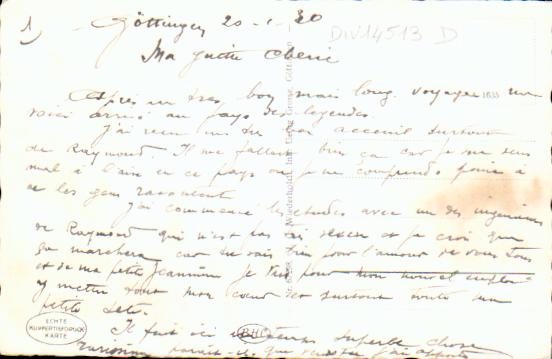 1) Göttingen 20-1-30
DIV14513 D
Ma petite Chérie
Après un très bon mais long voyage me
voici arrivé au pays des legendes.
J'ai reçu un très bon acceuil surtout
de Raymond. Il me fallait bien ça car je me sens
mal à l'aise en ce pays où je ne comprends point à
ce les gens racontent
J'ai commencé les études avec un des ingenieurs
de Raymond qui n'est pas et je crois que
ça marchera car tu sais bien pour l'amour de vous tous
et de ma petite Jeannine je pour mon nouvel emploi
y mettre tout mon coeur et surtout toute ma
petite tête.
Il fait ici un temps superbe chose
rarissime parait-il que
1635
ECHTE
KUPFERTIEFDRUCK
KARTE